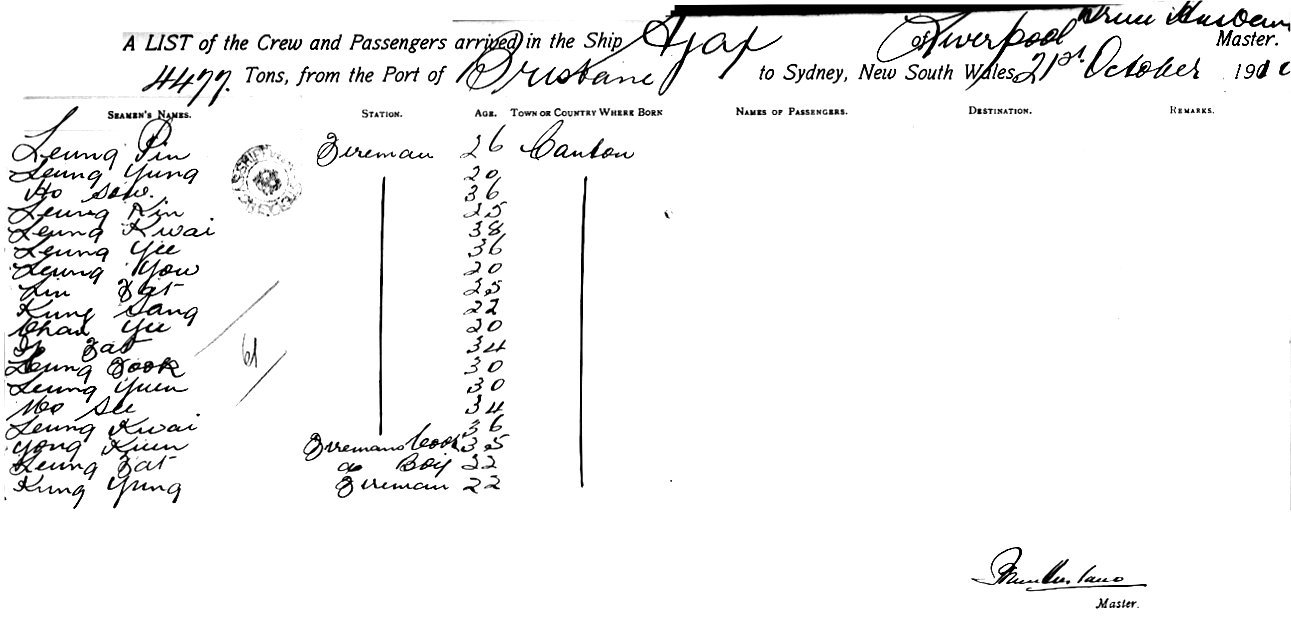 A LIST of the Crew and Passengers arrived in the Ship Ajax of Liverpool
Master.
4477 Tons, from the Port of Brisbane to Sydney, New South Wales, 21st October 1910
SEAMEN'S NAMES. STATION. AGE. TOWN OR COUNTRY WHERE BORN NAMES OF PASSENGERS. DESTINATION. REMARKS.
Leung Pin Fireman 26 Canton
Leung Yung 20
Ho Sow. 36
Leung Kin 25
Leung Kwai 38
Leung Yee 36
Leung You 20
Lin Fat 25
Kung Sang 22
Chan Yee 20
Fat 34
Leung Fook 30
Leung Yuen 30
Mo See 34
Leung Kwai 36
Yong Kuen Firemans Cook 35
Leung Fat do Boy 22
Kung Yung Fireman 22
61
Master.